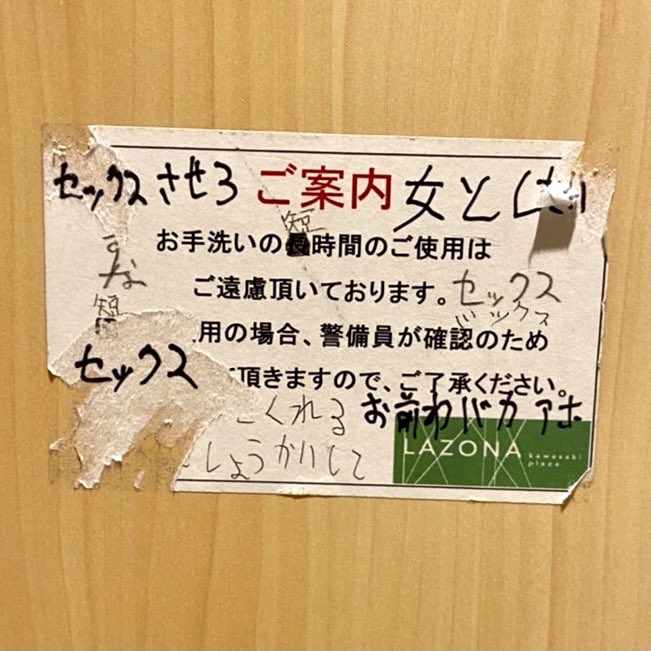 セックスさせろ ご案内 女と
短
お手洗いの長時間のご使用は
な
ご遠慮頂いております。セックス
短
用の場合、警備員が確認のため
セックス
頂きますので、ご了承ください。
くれる お前わバカ アホ
しょうかいして
LAZONA kawasaki
plaza